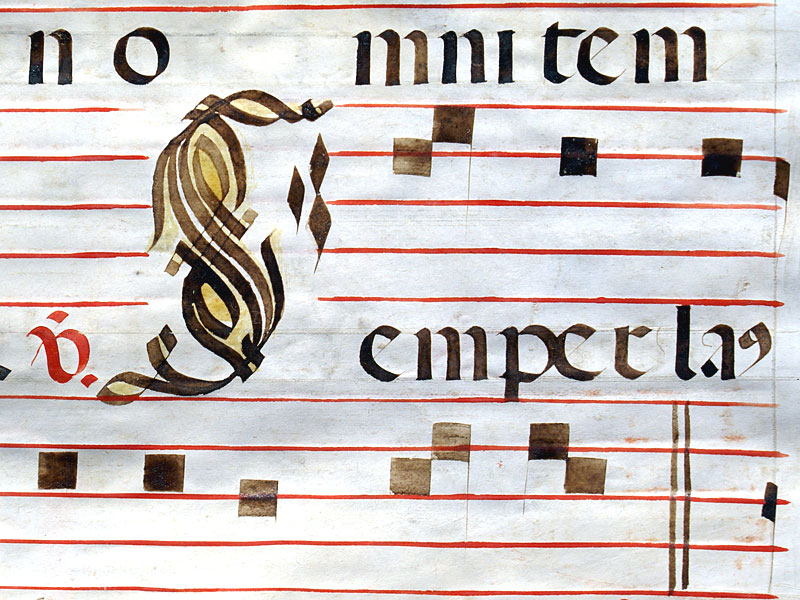 n o mni tem
℣. Semper laꝰ